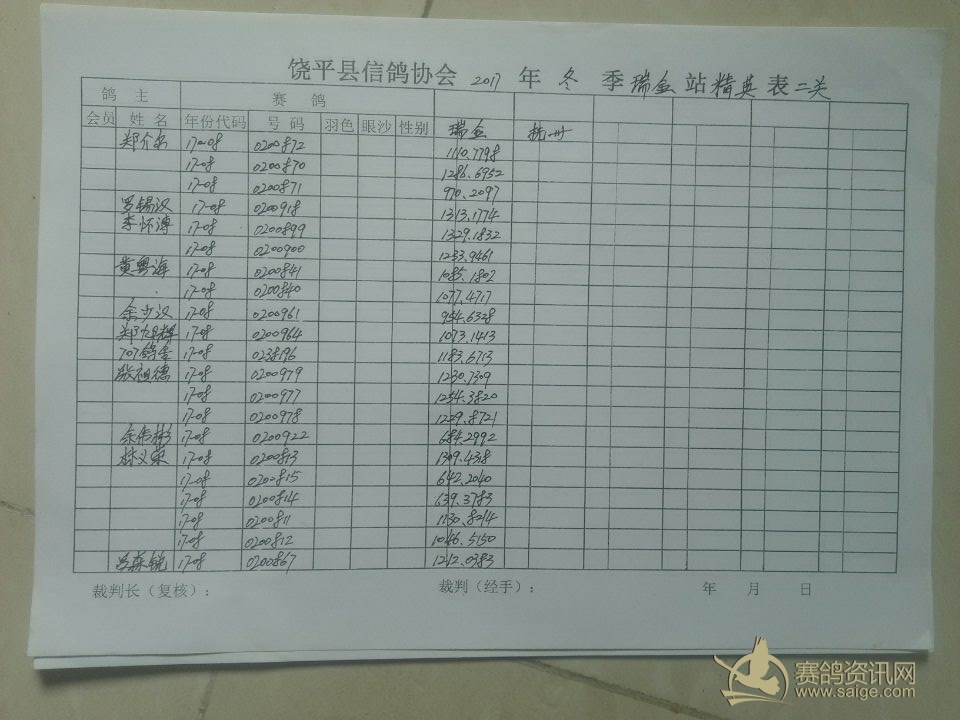 饶平县信鸽协会 2017 年 冬 季 瑞金 站 精英 表 二关
鸽 主 赛 鸽
会员 姓 名 年份代码 号 码 羽色 眼沙 性别 瑞金 抚州
郑介名 17-08 0200872 1110.7798
17-08 0200870 1286.6952
17-08 0200871 970.2097
罗锡汉 17-08 0200918 1313.1774
李怀溥 17-08 0200899 1329.1832
17-08 0200900 1233.9461
黄粤海 17-08 0200841 1085.1802
17-08 0200840 1077.4717
余少汉 17-08 0200961 954.6328
郑旭辉 17-08 0200964 1073.1413
707鸽舍 17-08 0238196 1183.6713
张祖德 17-08 0200979 1230.7309
17-08 0200977 1254.3820
17-08 0200978 1229.8721
余伟彬 17-08 0200922 684.2992
林义荣 17-08 0200813 1309.4338
17-08 0200815 642.2040
17-08 0200814 639.3783
17-08 0200811 1130.8214
17-08 0200812 1046.5150
吕森锐 17-08 0200867 1242.0383
裁判长（复核）： 裁判（经手）： 年 月 日
赛鸽资讯网
www.saige.com